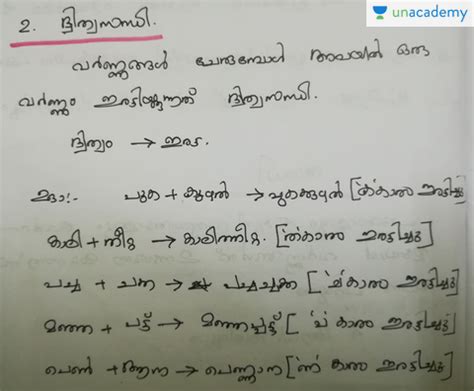 unacademy
2. ദ്വിത്വസന്ധി.
വർണ്ണങ്ങൾ ചേരുമ്പോൾ അവയിൽ ഒരു
വർണ്ണം ഇരട്ടിയ്ക്കുന്നത് ദ്വിത്വസന്ധി.
ദ്വിത്വം → ഇരട്ട.
ഉദാ:- പുക + കുഴൽ → പുകക്കുഴൽ ['ക'കാരം ഇരട്ടിച്ചു]
കാലി + തീറ്റ → കാലിത്തീറ്റ. ['ത'കാരം ഇരട്ടിച്ചു]
പച്ച + → ['ച'കാരം ഇരട്ടിച്ചു]
മഞ്ഞ + പട്ട് → മഞ്ഞപ്പട്ട് ['പ'കാരം ഇരട്ടിച്ചു]
പെൺ + ആന → പെണ്ണാന ['ണ'കാരം ഇരട്ടിച്ചു]